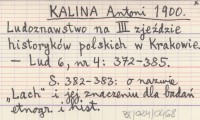 KALINA Antoni 1900.
Ludoznawstwo na III zjeździe
historyków polskich w Krakowie.
— Lud 6, nr 4: 372-385.
S. 382-383: o nazwie
„Lach" i jej znaczeniu dla badań
etnogr. i hist.